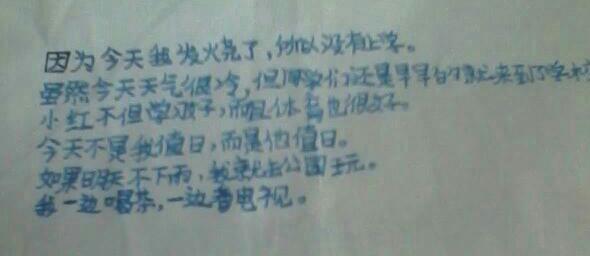 因为今天我发火烧了，所以没有上学。
虽然今天天气很冷，但同学们还是早早的就来到了学校
小红不但学习好，而且体育也很好。
今天不是我值日，而是他值日。
如果明天不下雨，我就去公园玩。
我一边喝茶，一边看电视。